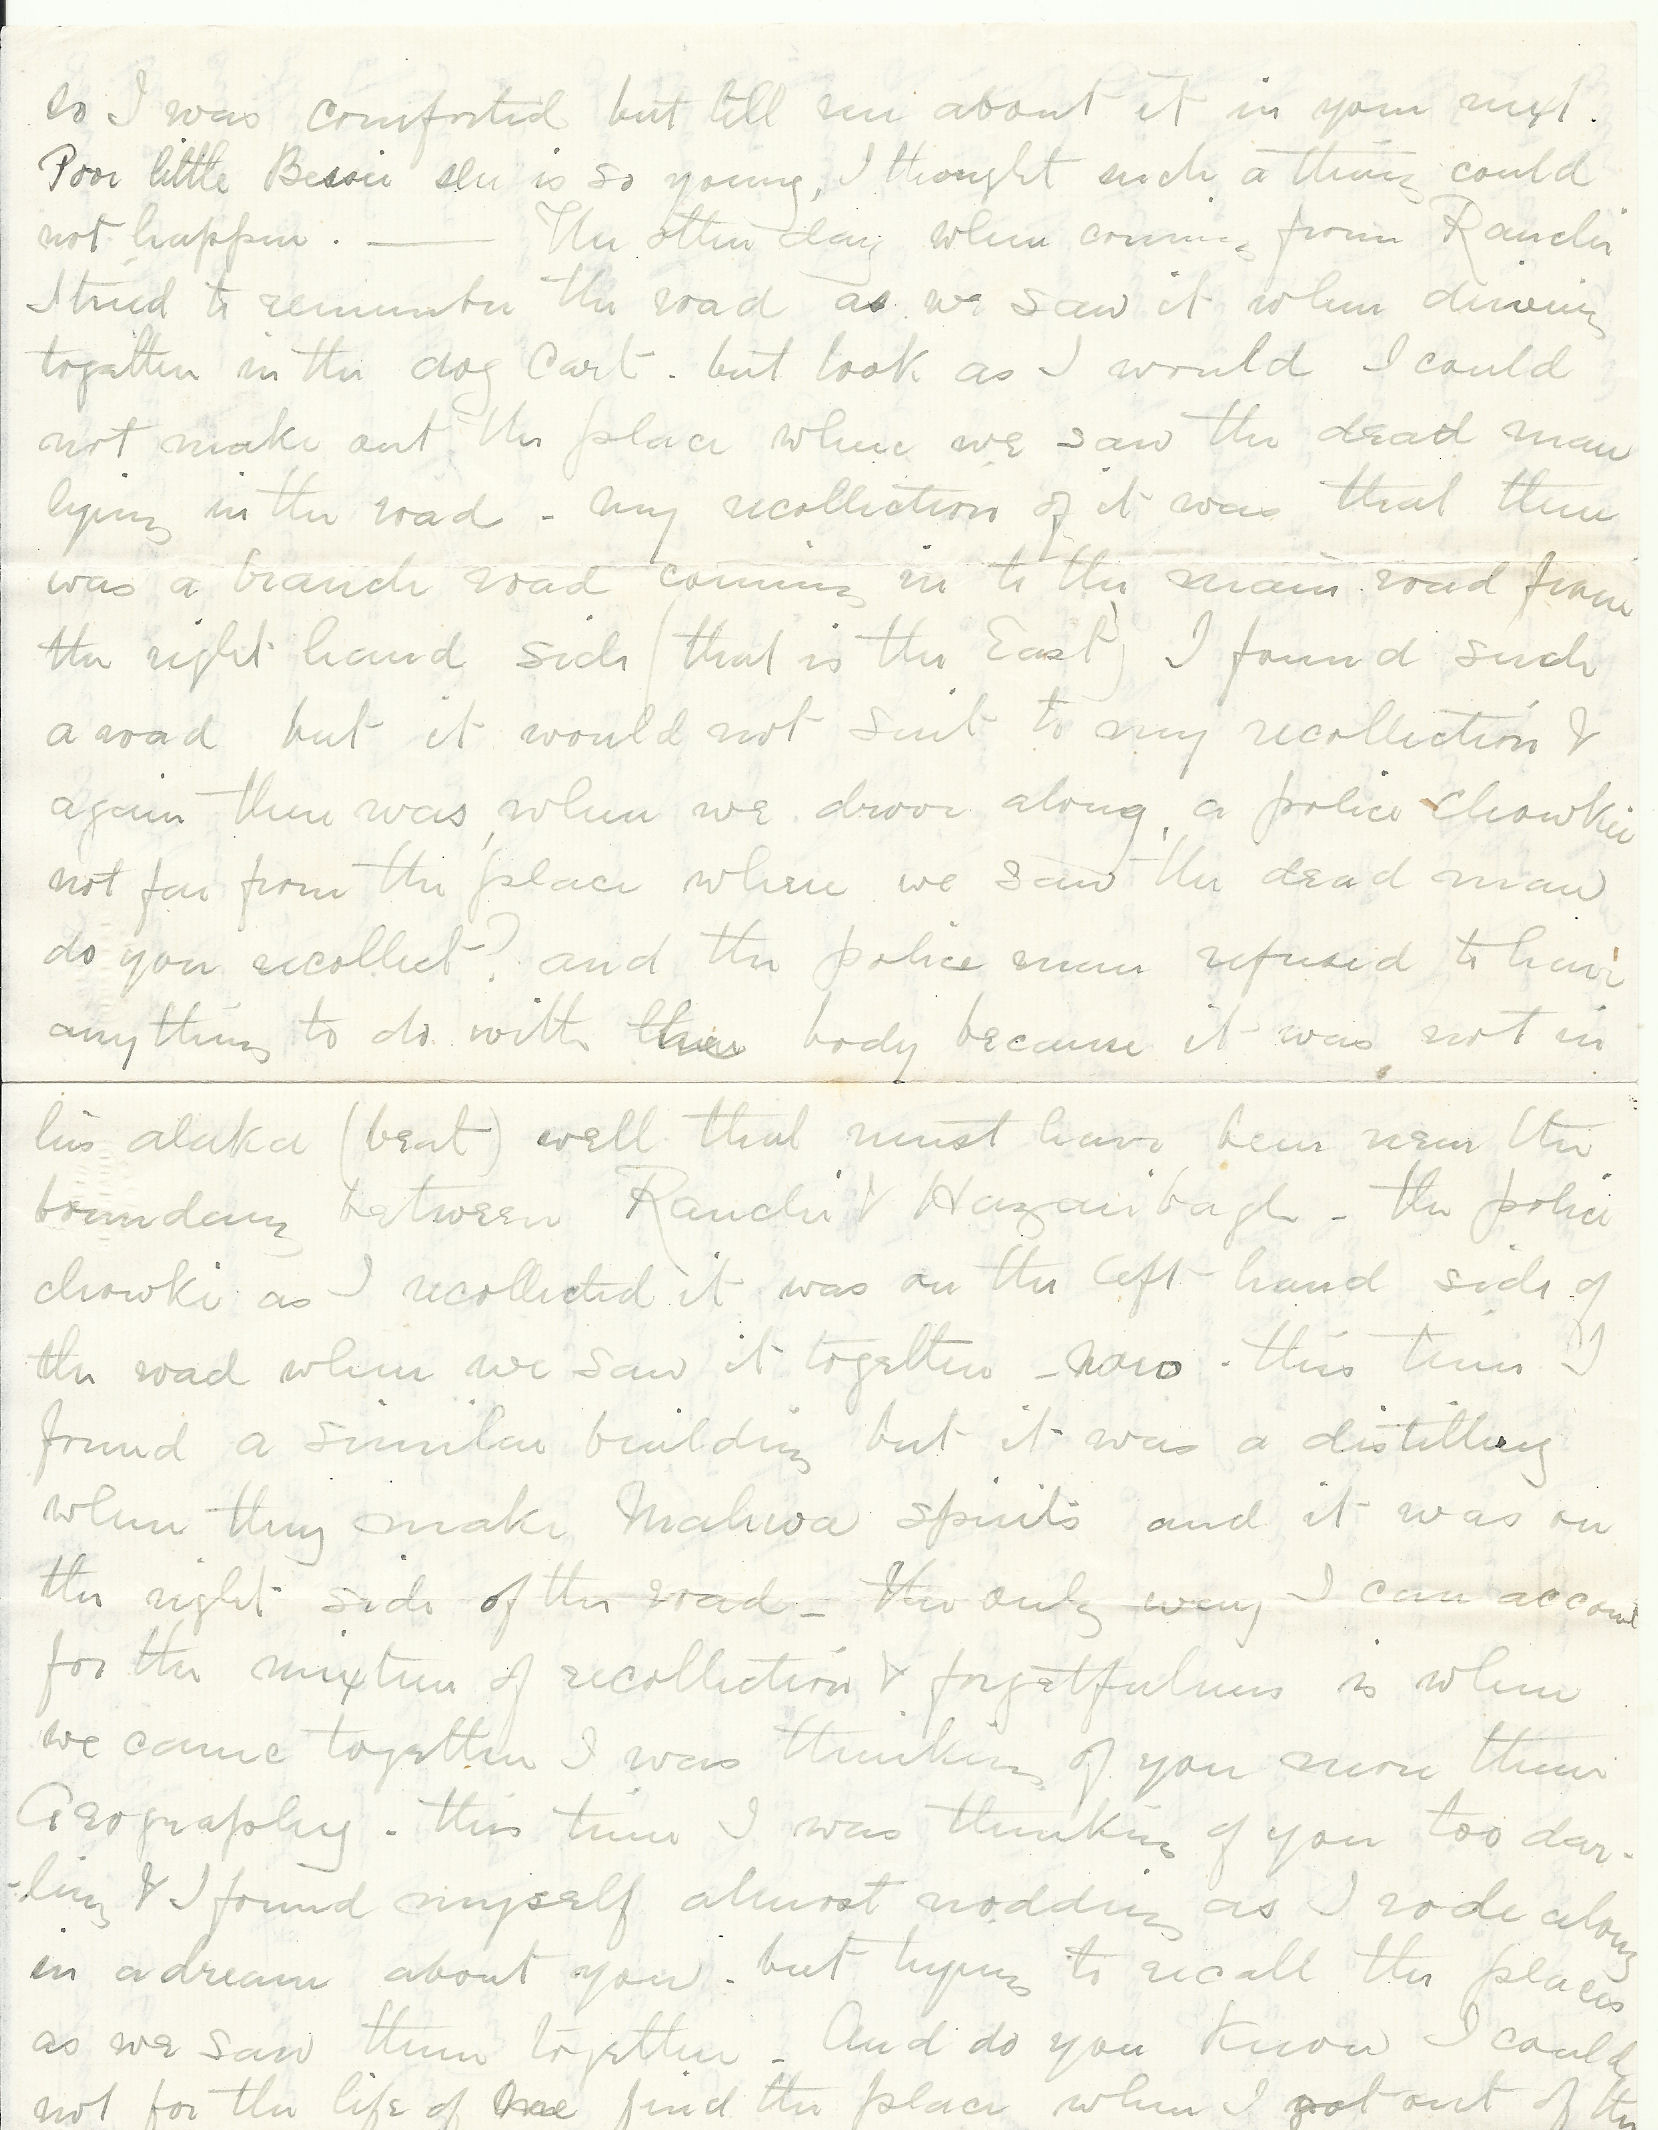 so I was comforted but tell me about it in your next.
Poor little Bessie she is so young, I thought such a thing could
not happen. — The other day when coming from Ranchi
I tried to remember the road as we saw it when driving
together in the dog Cart - but look as I would I could
not make out the place where we saw the dead man
lying in the road - my recollection of it was that there
was a branch road coming in to the main road from
the right hand side (that is the East) I found such
a road but it would not suit to my recollection &
again there was, when we drove along, a police chowkie
not far from the place where we saw the dead man
do you recollect? and the police man refused to have
anything to do with the body because it was not in
his alaka (beat) well that must have been near the
boundary between Ranchi & Hazaribagh - the police
chowki as I recollected it was on the left hand side of
the road when we saw it together - now - this time I
found a similar building but it was a distillery
where they make Mahwa spirits and it was on
the right side of the road - the only way I can account
for the mixture of recollection & forgetfulness is when
we came together I was thinking of you more than
Geography - this time I was thinking of you too dar-
-ling & I found myself almost nodding as I rode along
in a dream about you - but trying to recall the places
as we saw them together - And do you know I could
not for the life of me find the place where I got out of the